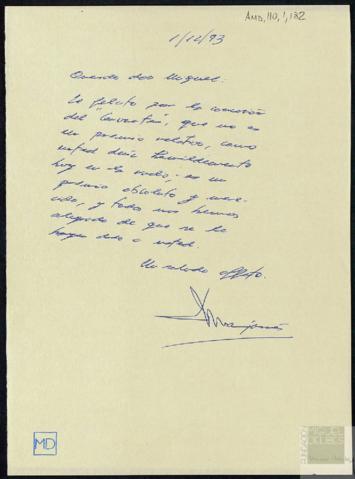 AMD, 110, 1, 132
1/12/93
Querido don Miguel:
Le felicito por la concesión
del "Cervantes", que no es
un premio relativo, como
usted decía humildemente
hoy en la radio; es un
premio absoluto y mere-
cido, y todos nos hemos
alegrado de que se lo
hayan dado a usted.
Un saludo afftо.
MD
FUNDACIÓN
MIGUEL
DELIBES